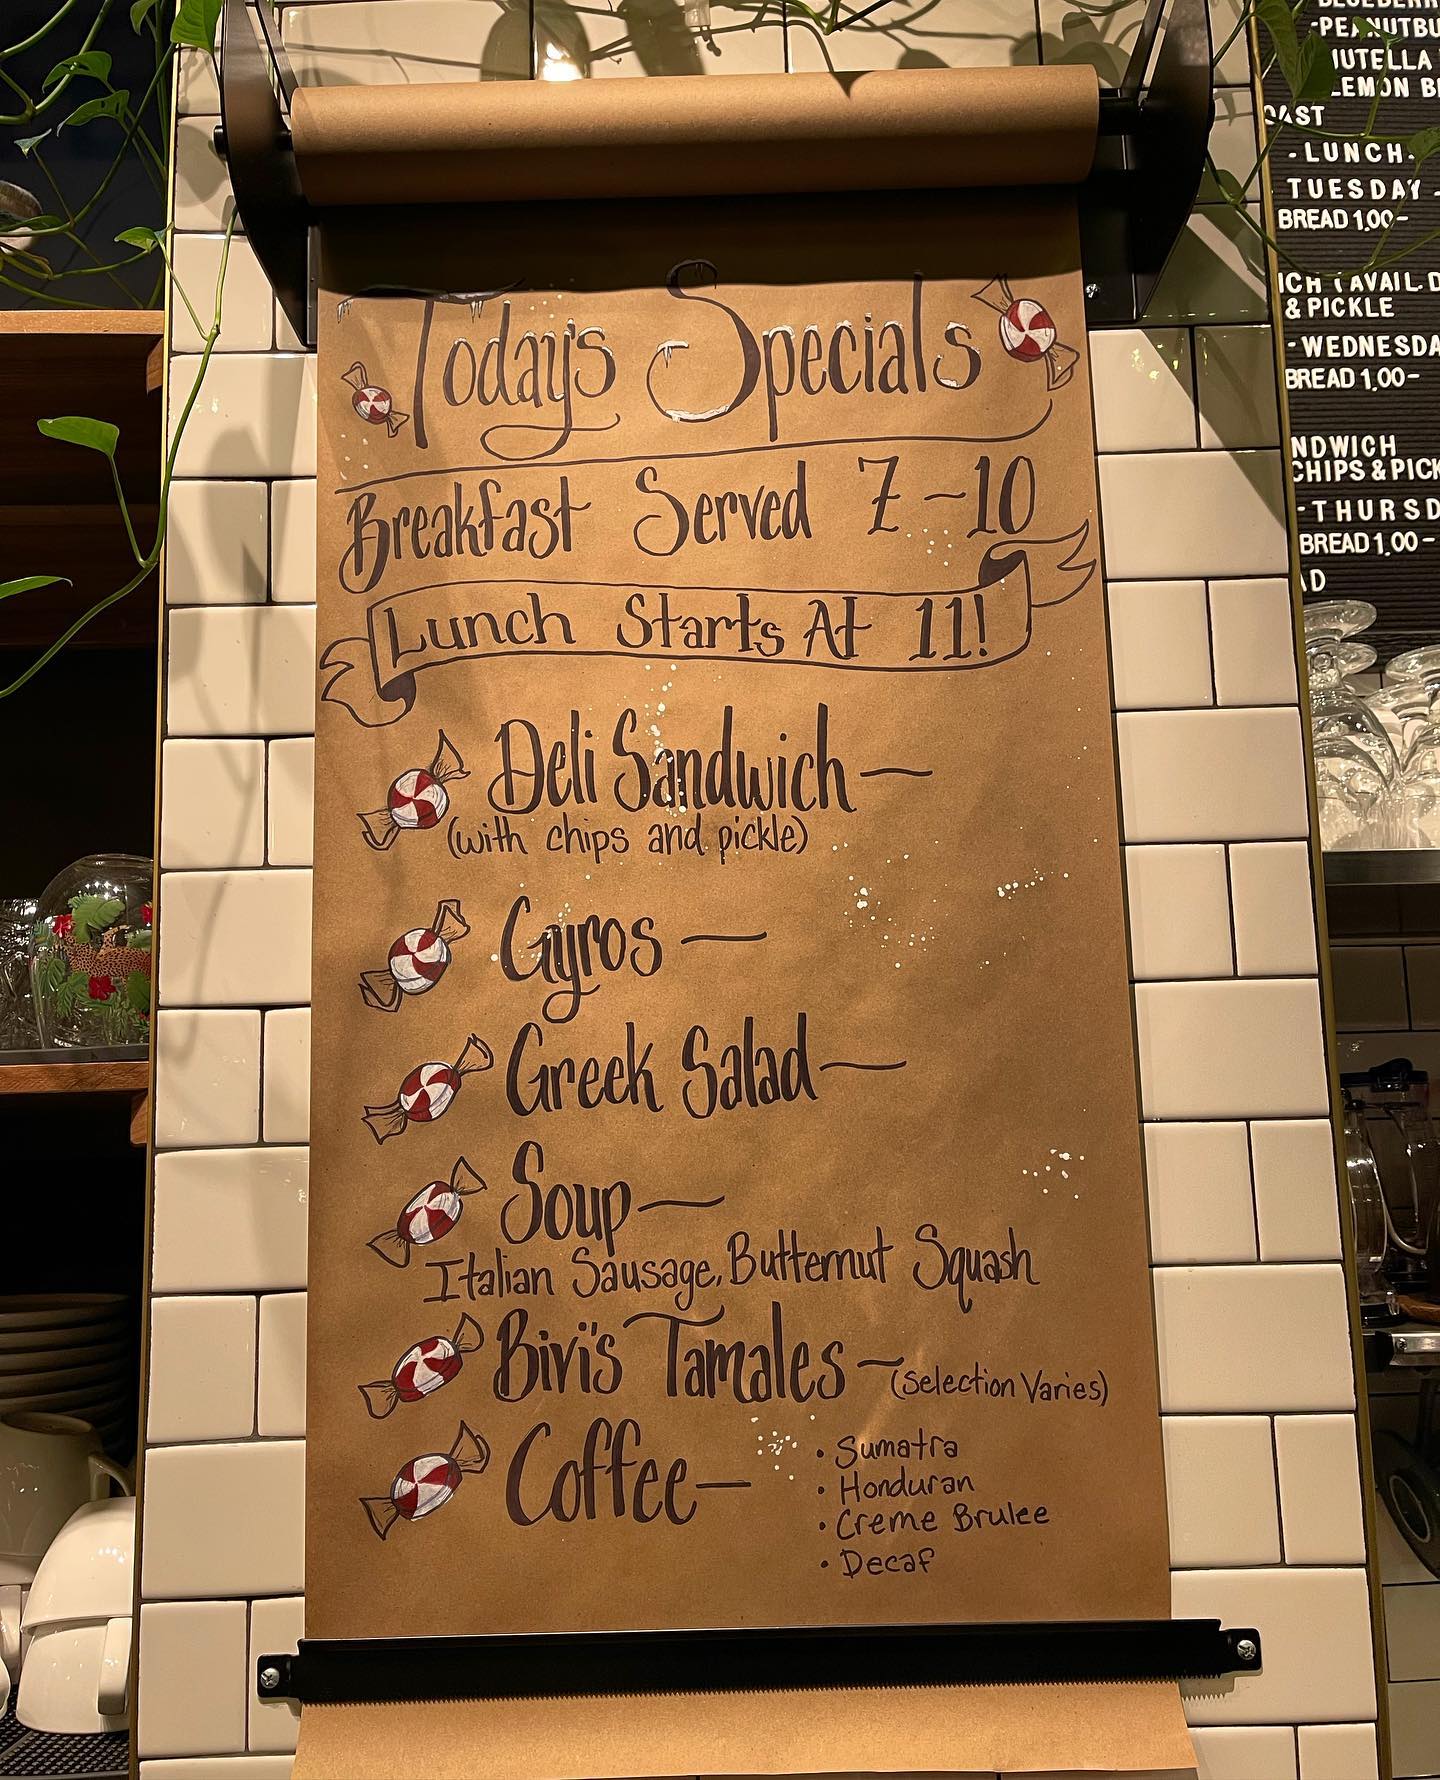 Today's Specials
Breakfast Served 7-10
Lunch Starts At 11!
Deli Sandwich—
(with chips and pickle)
Gyros—
Greek Salad—
Soup—
Italian Sausage, Butternut Squash
Bivi's Tamales—(Selection Varies)
Coffee—
• Sumatra
• Honduran
• Creme Brulee
• Decaf
LEMON
-LUNCH-
TUESDAY-
BREAD 1.00-
& PICKLE
-
BREAD 1.00-
CHIPS &
-
BREAD 1.00-